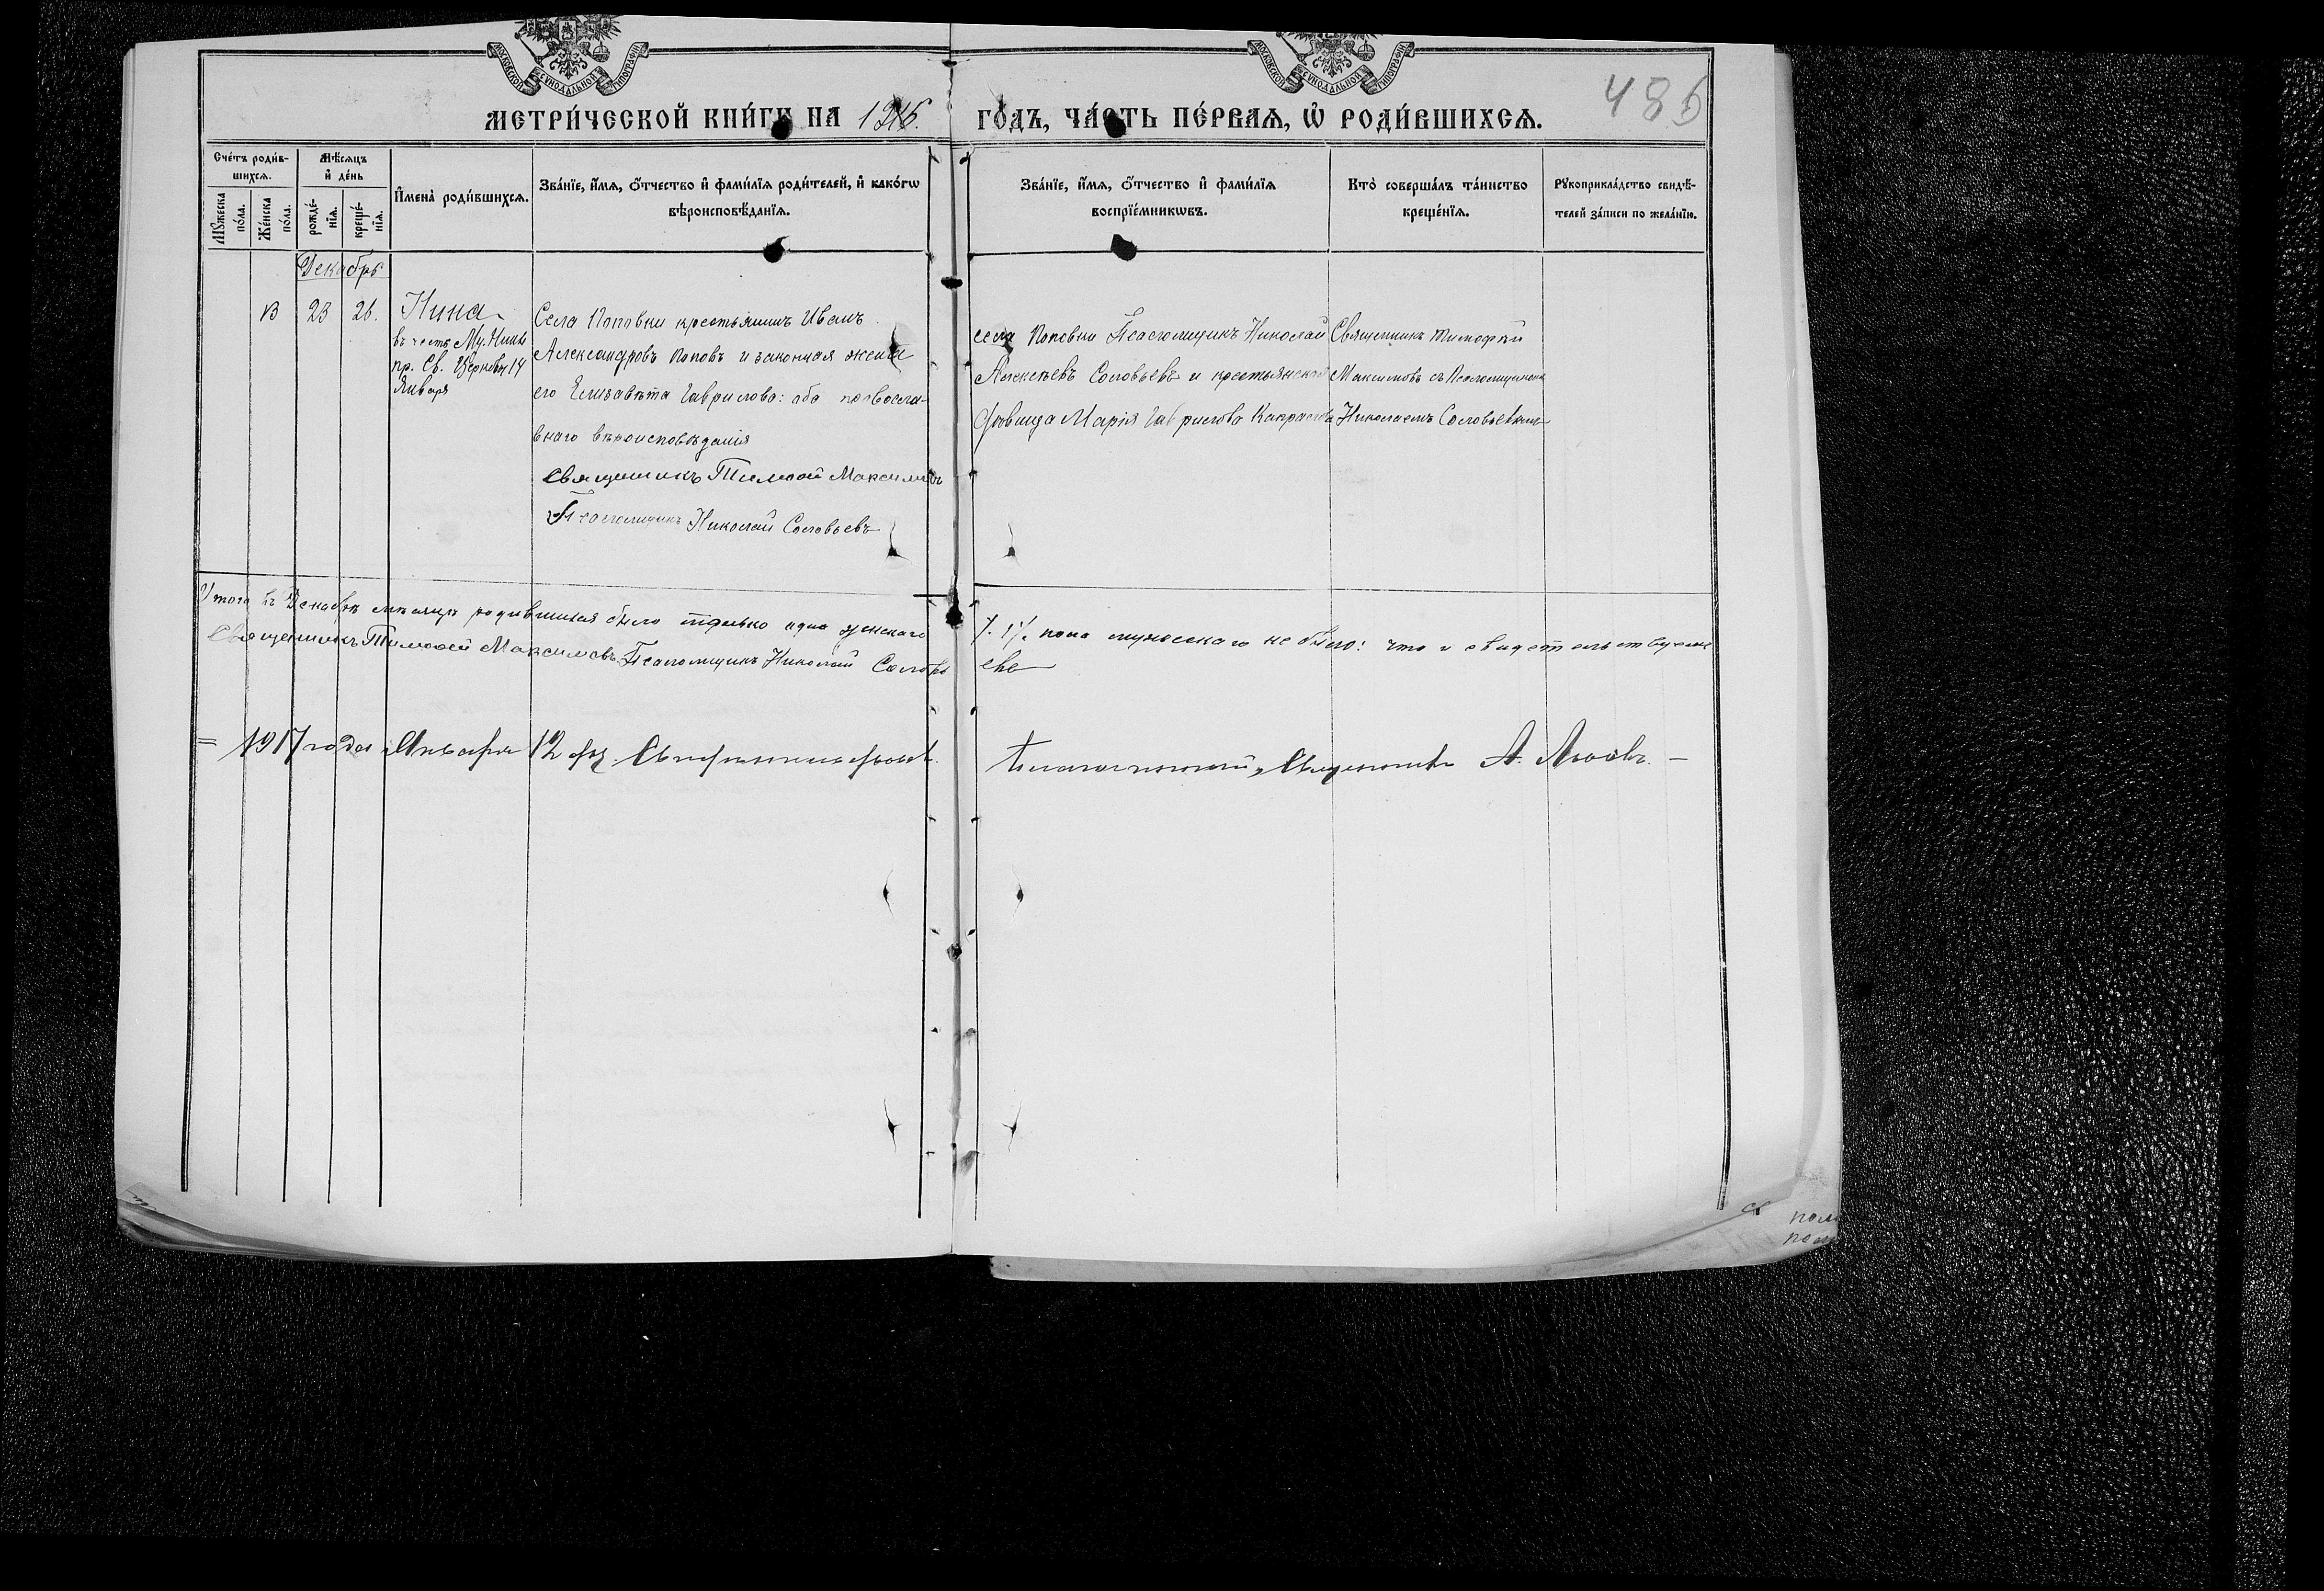 МОСКОВСКОЙ СѴНОДАЛЬНОЙ ТИПОГРАФІИ
МОСКОВСКОЙ СѴНОДАЛЬНОЙ ТИПОГРАФІИ
486
МЕТРИ́ЧЕСКОЙ КНИ́ГИ НА 1916. ГО́ДЪ, ЧА́СТЬ ПЕ́РВАѦ, Ѡ҆ РОДИ́ВШИХСѦ.
Сче́тъ роди́в-
шихсѧ.
Мѣ́сѧцъ
и҆ де́нь
Мꙋ́жеска
по́ла.
Же́нска
по́ла.
рожде́-
нїѧ.
креще́-
нїѧ.
И҆мена̀ роди́вшихсѧ.
Зва́нїе, и҆́мѧ, ѻ҆́тчество и҆ фами́лїѧ роди́телей, и҆ како́гѡ
вѣроисповѣ́данїѧ.
Зва́нїе, и҆́мѧ, ѻ҆́тчество и҆ фами́лїѧ
воспрїе́мникѡвъ.
Кто̀ соверша́лъ та́инство
креще́нїѧ.
Рꙋкоприкла́дство свидѣ́-
телей за́писи по жела́нїю.
Декабрь
13 23 26. Нина
въ честь Му. Нины
пр. Св. Церковью 14
Января
Села Поповки крестьянинъ Иванъ
Александровъ Поповъ и законная жена
его Елизавѣта Гаврилова: оба правосла-
внаго вѣроисповѣданія
Священникъ Тимоѳей Максимовъ
Псаломщикъ Николай Соловьевъ
села Поповки Псаломщикъ Николай
Алексѣевъ Соловьевъ и крестьянская
дѣвица Марія Гаврилова
Священникъ Тимофей
Максимовъ съ Псаломщикомъ
Николаемъ Соловьевымъ
Итого въ Декабрѣ мѣсяцѣ родившихся было только одна женскаго /. 1 /. пола мужескаго не было: что и свидетельствуемъ
Священникъ Тимоѳей Максимовъ Псаломщикъ Николай Соловь евъ
= 1917 года Января 12 дня. Благочинный, Священникъ А.